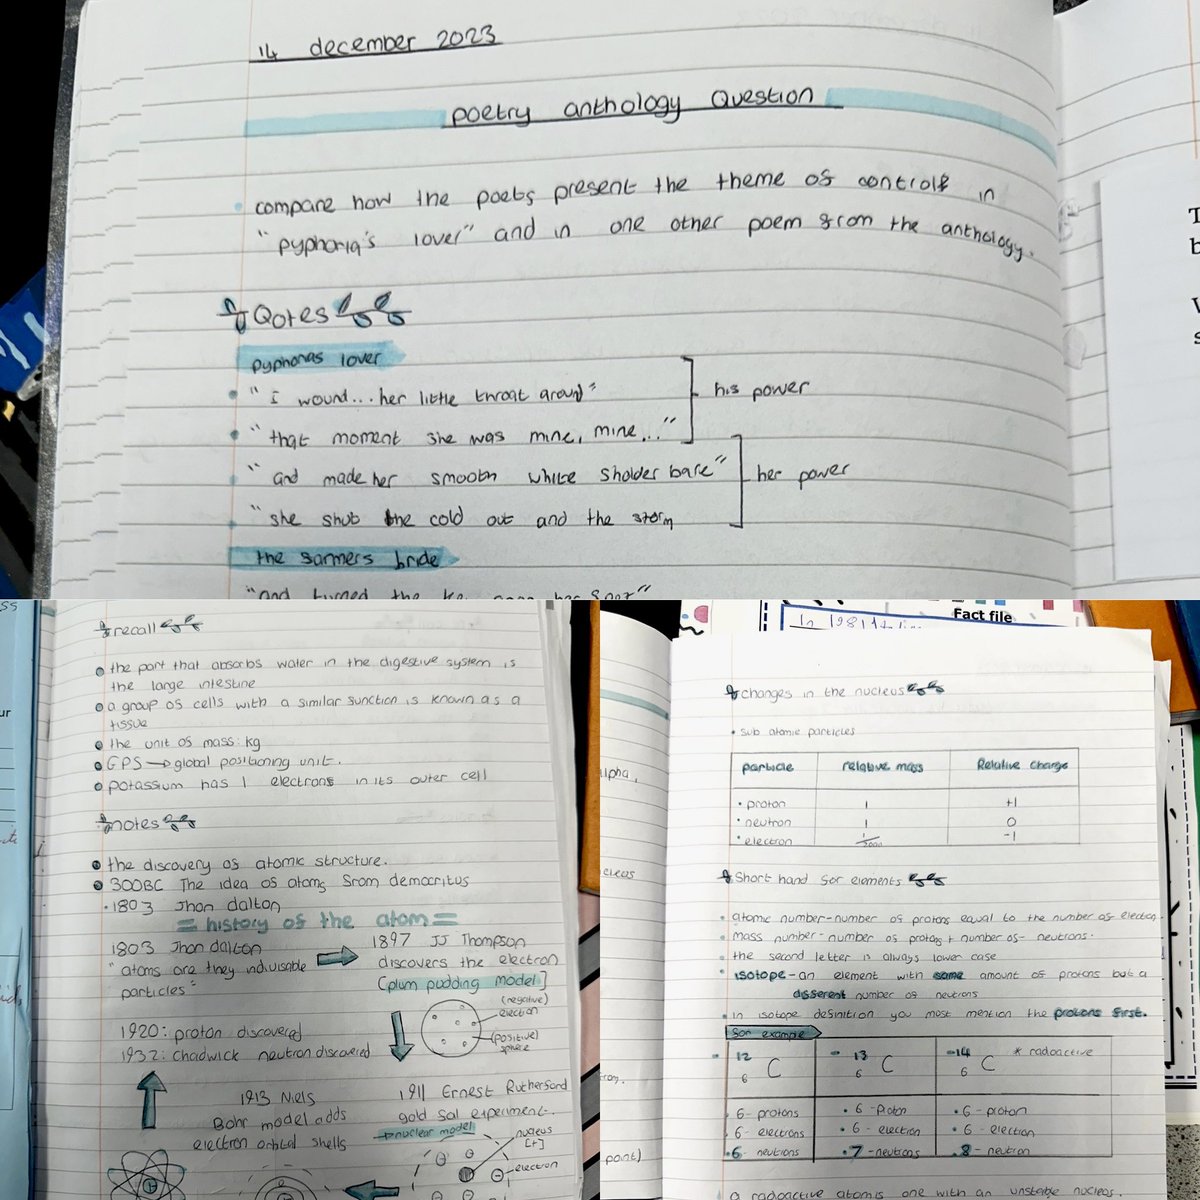 14 december 2023
poetry anthology Question
compare how the poets present the theme of control in
"pyphoria's lover" and in one other poem from the anthology.
Qotes
pyphoras lover
"I wound... her little throat around"
his power
"that moment she was mine, mine..."
"and made her smooth white sholder bare"
her power
"she shut the cold out and the storm
the farmers bride
"and turned the key upon her fast"
recall
the part that absorbs water in the digestive system is
the large intestine
a group of cells with a similar function is known as a
tissue
the unit of mass: kg
GPS → global positioning unit.
potassium has 1 electrons in its outer cell
notes
the discovery of atomic structure.
300BC The idea of atoms from democritus
1803 Jhon dalton
= history of the atom =
1803 Jhon dalton
"atoms are they indivisable
particles"
1897 JJ Thompson
discovers the electron
[plum pudding model]
(negative)
electron
(positive)
sphere
1920: proton discovered
1932: Chadwick neutron discovered
1913 Niels
Bohr model adds
electron orbital shells
1911 Ernest Rutherford
gold foil experiment.
→nuclear model
nucleus
[+]
electron
Fact file
In 1981
alpha,
cleus
point)
changes in the nucleus
sub atomic particles
particle relative mass Relative charge
proton 1 +1
neutron 1 0
electron 1/2000 -1
Short hand for elements
atomic number-number of protons equal to the number of electron.
mass number- number of protons + number of- neutrons.
the second letter is always lower case
isotope-an element with same amount of protons but a
different number of neutrons
in isotope definition you most mention the protons first.
for example
12 6 C 13 6 C 14 6 C * radioactive
6- protons 6- Proton 6- proton
6- electrons 6- electron 6- electron
6- neutrons 7-neutrons 8- neutron
a radioactive atom is one with an unstable nucleus.